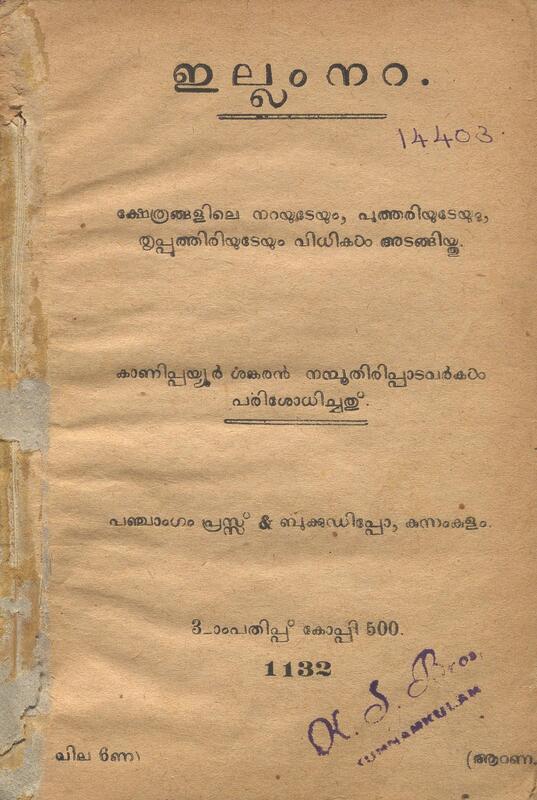 ഇല്ലംനറ.
14403.
ക്ഷേത്രങ്ങളിലെ നറയുടേയും, പുത്തരിയുടേയും,
തൃപ്പുത്തിരിയുടേയും വിധികൾ അടങ്ങിയ്തു.
കാണിപ്പയ്യൂർ ശങ്കരൻ നമ്പൂതിരിപ്പാടവർകൾ
പരിശോധിച്ചതു്.
പഞ്ചാംഗം പ്രസ്സ് & ബുക്കുഡിപ്പോ, കുന്നംകുളം.
3ാംപതിപ്പ് കോപ്പി 500.
1132
K. S. Bros,
KUNNAMKULAM
വില
(ആറണ.